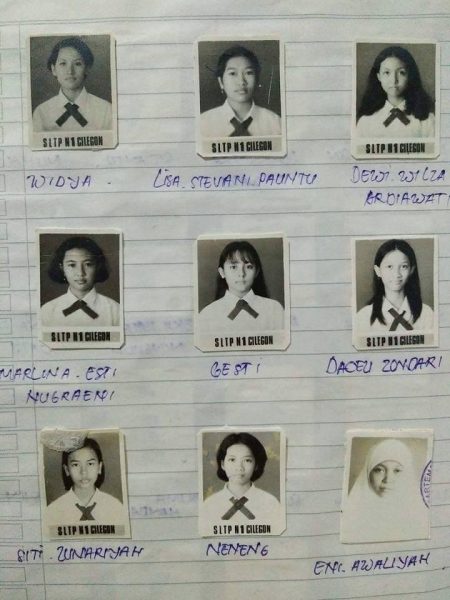 SLTP N 1 CILEGON
SLTP N 1 CILEGON
SLTP N 1 CILEGON
WIDYA.
LISA. STEVANI. PAUNTU
DEWI. WILZA
ARDIAWATI
SLTP N 1 CILEGON
SLTP N 1 CILEGON
SLTP N 1 CILEGON
MARLINA. ESTI
NUGRAENI
GESTI
DADEU ZONDARI
SLTP N 1 CILEGON
SLTP N 1 CILEGON
ARTEM
SITI. ZUNARIYAH
NENENG
ENI. AWALIYAH.